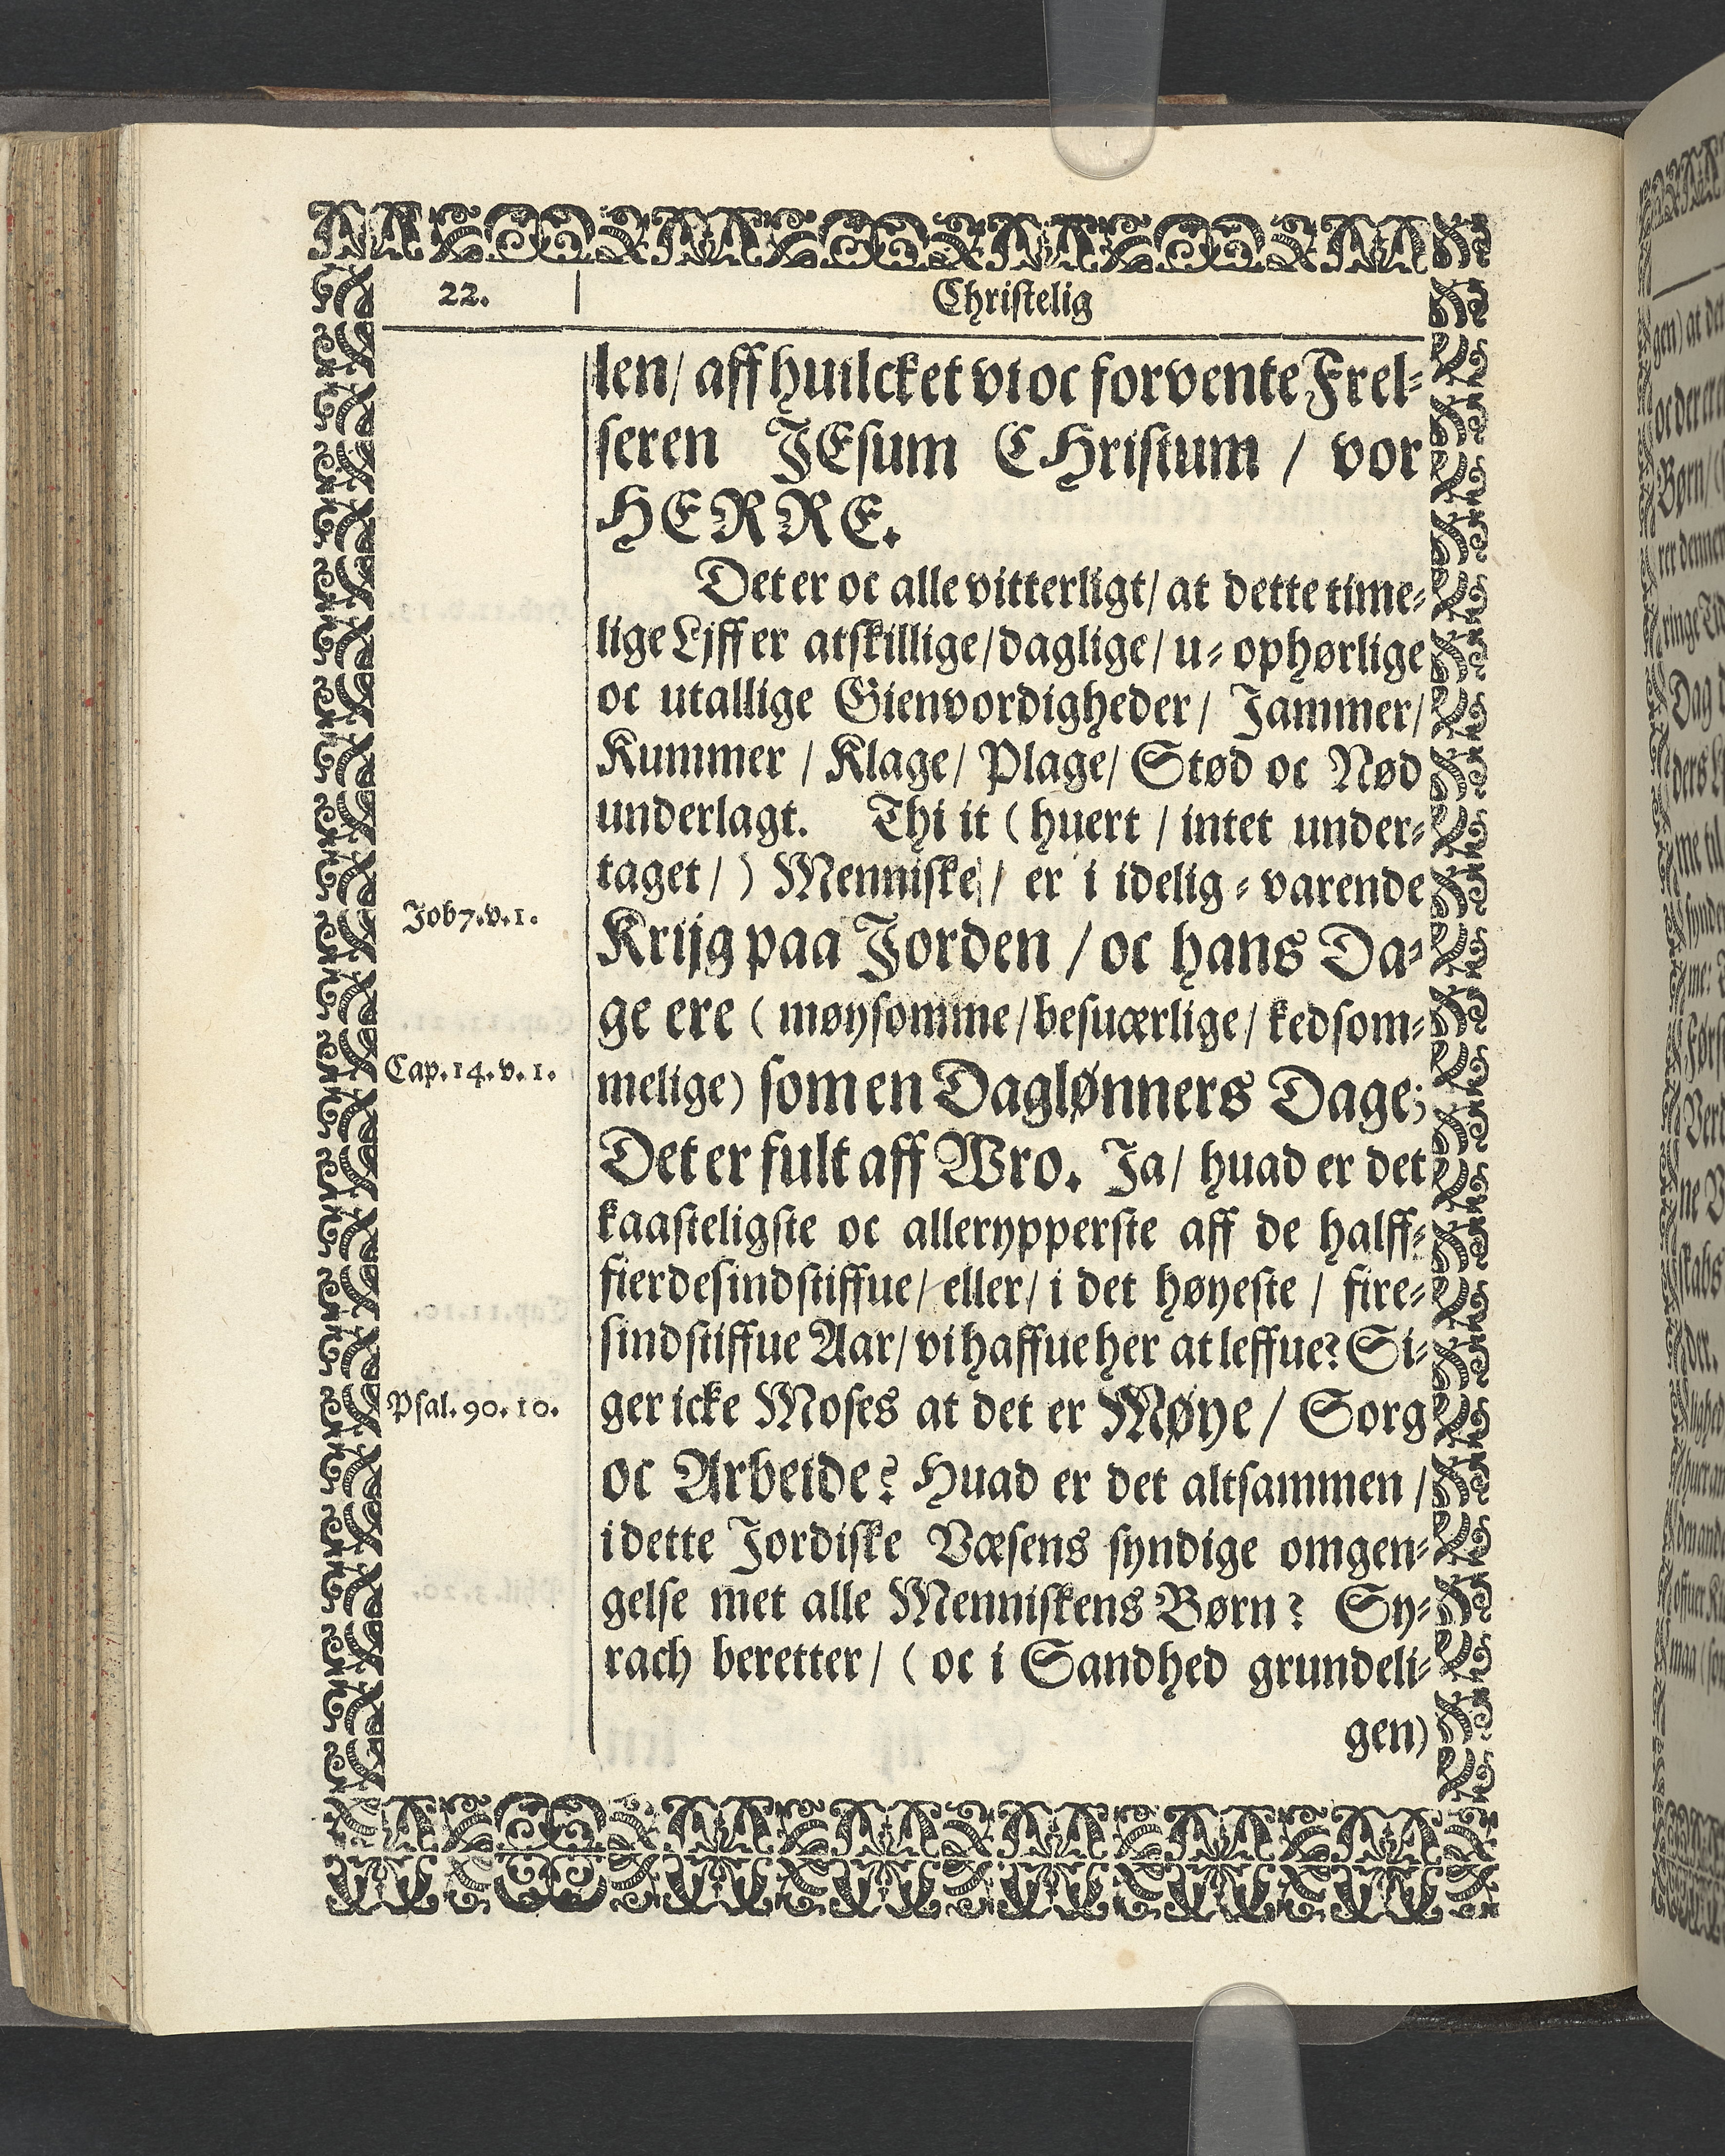 22.
Christelig
len/ aff huilcket vi oc forvente Frel⸗
seren JEsum CHristum / vor
HERRE.
Det er oc alle vitterligt/ at dette time⸗
lige Ljff er atskillige/daglige/ u⸗ophørlige
oc utallige Gienvordigheder/ Jammer/
Kummer / Klage/ Plage/ Stød oc Nød
underlagt. Thi it ( huert / intet under⸗
taget/ ) Menniske / er i idelig⸗varende
Job 7.v.1.
Krijg paa Jorden / oc hans Da⸗
ge ere ( møysomme/besuærlige/ kedsom⸗
Cap.14.v.1.
melige) som en Daglønners Dage;
Det er fult aff Wro. Ja/ huad er det
kaasteligste oc allerypperste aff de halff⸗
fierdesindstiffue/ eller/ i det høyeste / fire⸗
sindstiffue Aar/ vi haffue her at leffue? Si⸗
Psal.90.10.
ger icke Moses at det er Møye/ Sorg
oc Arbeide? Huad er det altsammen /
i dette Jordiske Væsens syndige omgen⸗
gelse met alle Menniskens Børn? Sy⸗
rach beretter/ ( oc i Sandhed grundeli⸗
gen)